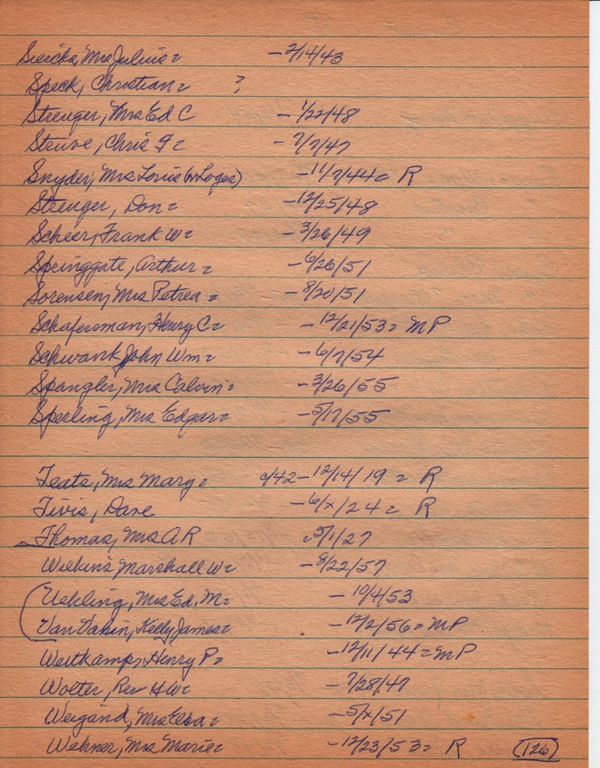 Sieicks, Mrs Julius = - 2/14/43
Speck, Christian = ?
Strenger, Mrs Ed C - 1/22/48
Struve, Chris G = - 7/7/47
Snyder, Mrs Louis (w Loges) - 11/7/44 = R
Strenger, Don = - 12/25/48
Scheer, Frank W = - 3/26/49
Springgate, Arthur = - 6/26/51
Sorensen, Mrs Petrea = - 8/20/51
Schafersman, Henry C = - 12/21/53 = MP
Schwank, John Wm = - 6/7/54
Spangler, Mrs Calvin = - 3/26/55
Sperling, Mrs Edgar = - 5/17/55
Teats, Mrs Marg = c/42 - 12/14/19 = R
Tivis, Dave - 6/x/24 = R
Thomas, Mrs A R 5/1/27
Wilkins Marshall W = - 8/22/57
Uehling, Mrs Ed, M = - 10/4/53
Van Vakin, Kelly James = - 12/2/56 = MP
Weitkamp, Henry P = - 12/11/44 = MP
Wolter, Rev H W = - 7/28/47
Weigand, Mrs Elsa = - 5/x/51
Wehner, Mrs Marie = - 12/23/53 = R (126)